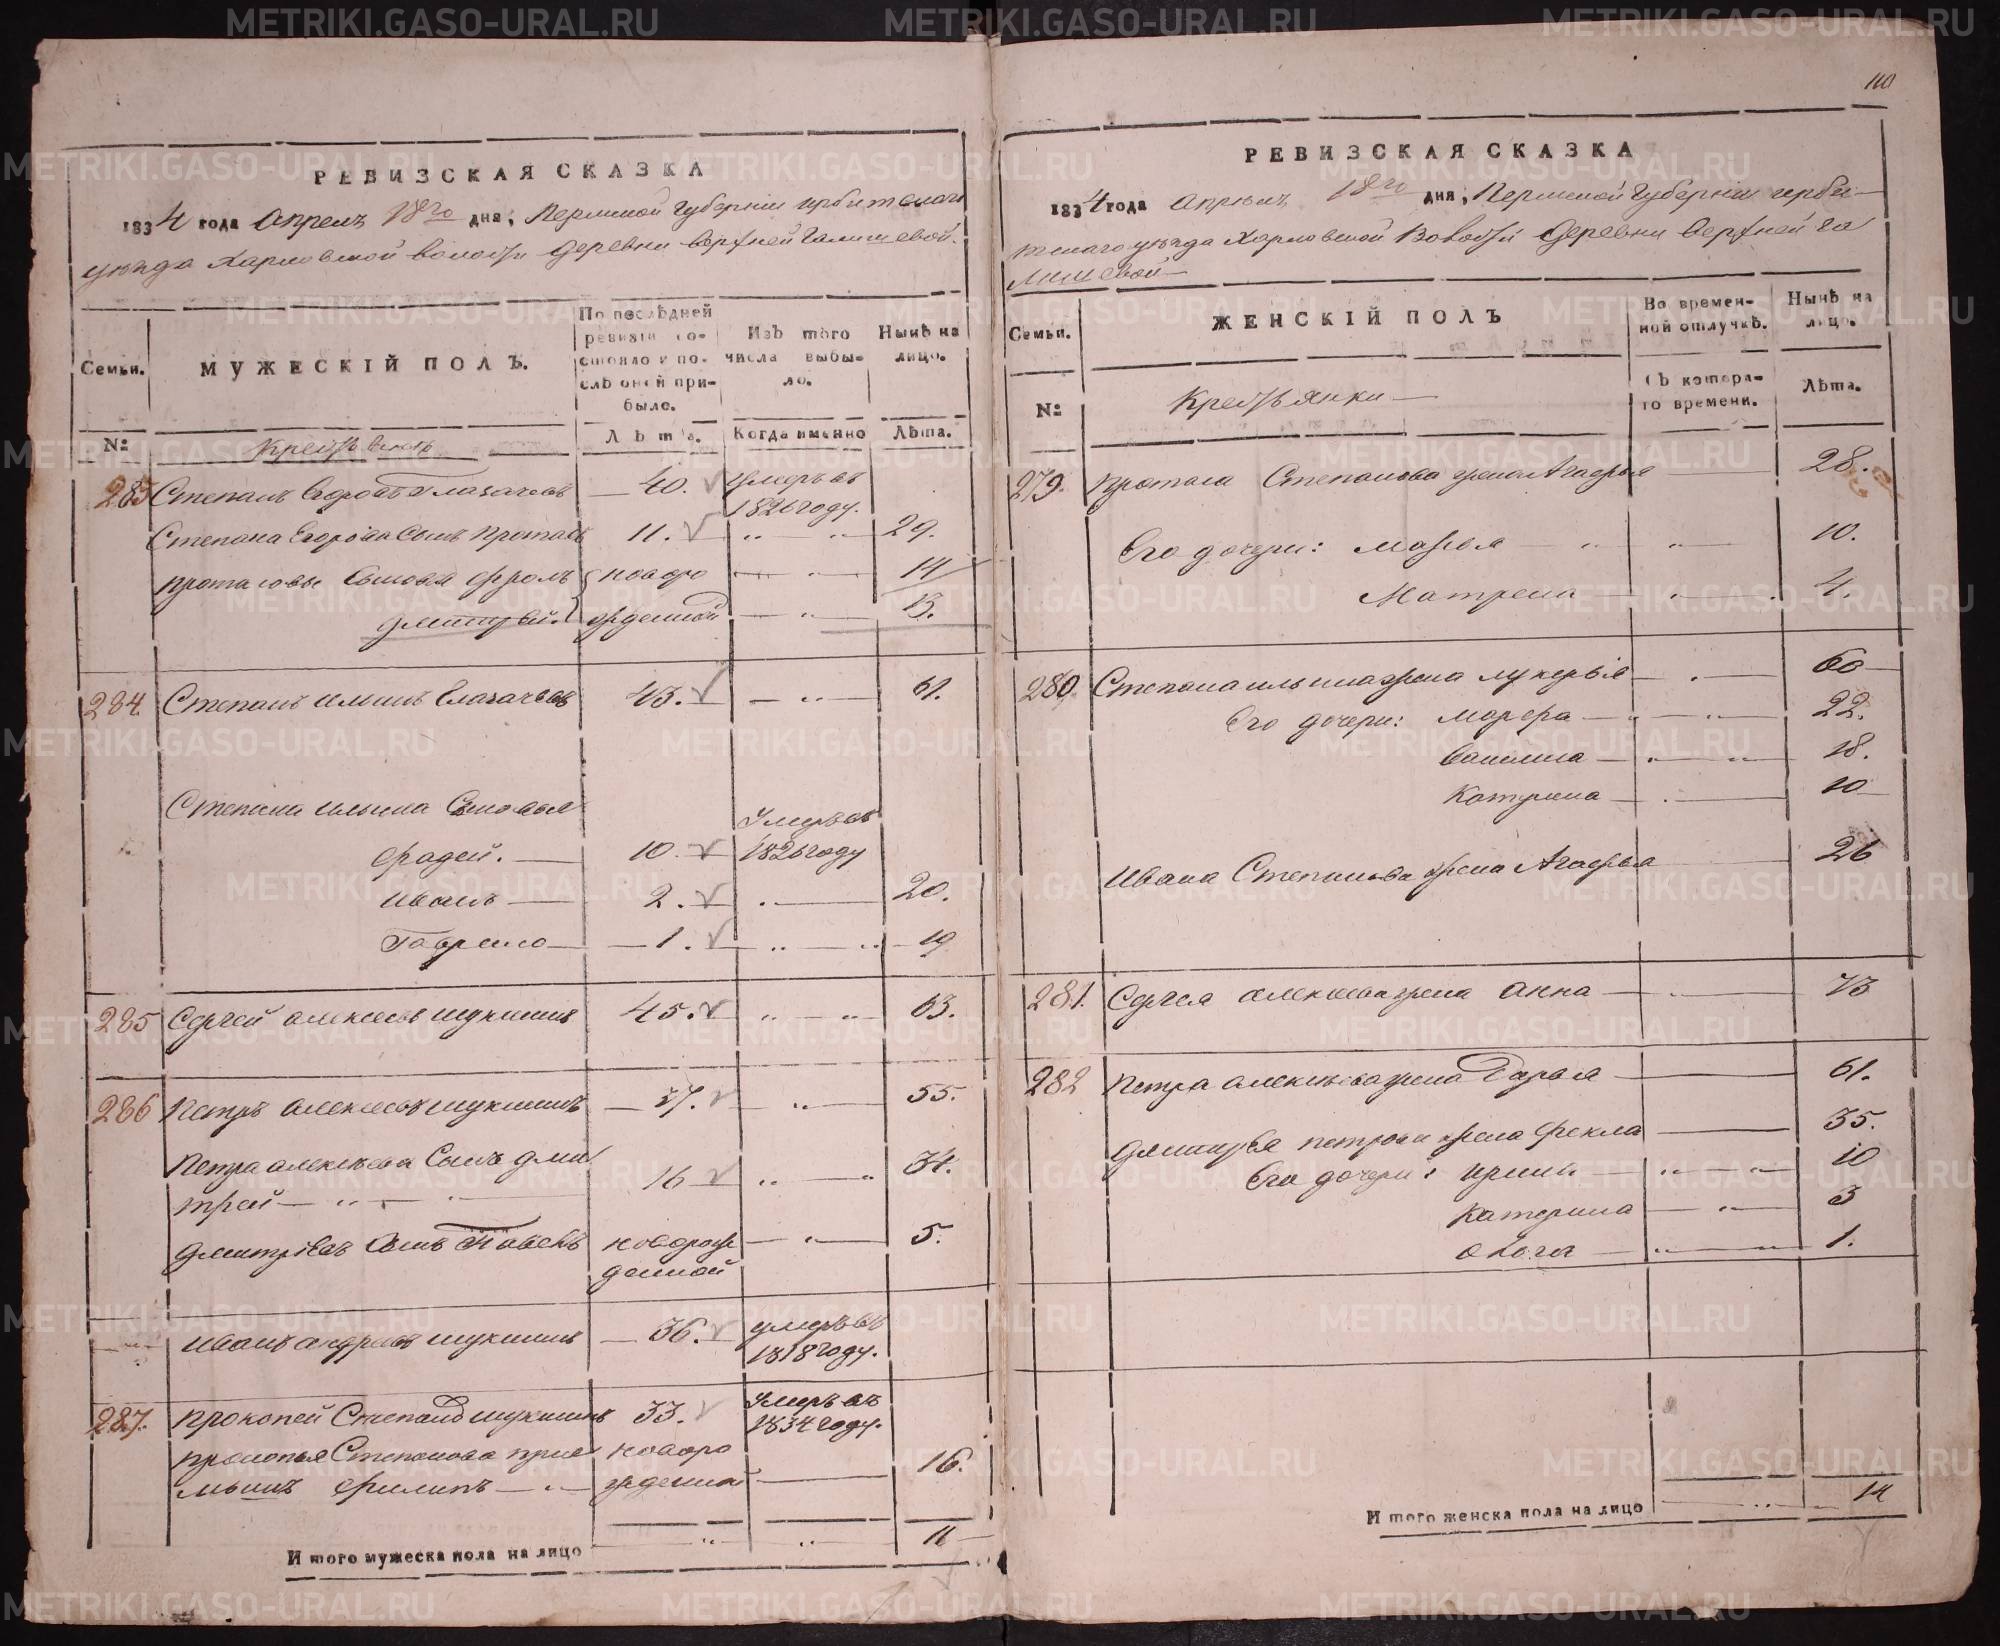 110
РЕВИЗСКАЯ СКАЗКА
1834 года Апрель 18го дня, Пермской Губернии ирбитскаго
уезда Харловской волости деревни верхней Галишевой.
Семьи.
МУЖЕСКІЙ ПОЛЪ.
По послѣдней ревизіи состояло и послѣ оной прибыло.
Изъ того числа выбыло.
Нынѣ на лицо.
№
Лѣта.
Когда именно
Лѣта.
283 Степанъ Егоровъ Глазачевъ — 40. умеръ въ 1826 году.
Степана Егорова сынъ Протасъ 11. 29.
Протасовы сыновья Фролъ новоро 14
Дмитрей. жденной 13.
284. Степанъ Ильинъ Глазачевъ 43. 61.
Степана Ильина Сыновья
Фадей. — 10. Умеръ въ 1826 году
Иванъ — 2. 20.
Гаврило — 1. 19
285 Сергей Алексеевъ Шукшинъ 45. 63.
286 Петръ Алексеевъ Шукшинъ — 37. 55.
Петра Алексеева Сынъ Дми
трей — 16 34.
Дмитріевъ Сынъ Павелъ новорож 5.
денной
Иванъ Андреевъ Шукшинъ — 36. умеръ въ 1818 году.
287. Прокопей Степановъ Шукшинъ 33. Умеръ въ 1834 году.
Прокопья Степанова прие новоро
мышъ Филипъ — жденной — 16.
Итого мужеска пола на лицо 11
РЕВИЗСКАЯ СКАЗКА
1834 года Апрель 18го дня, Пермской Губернии ирби-
тскаго уезда Харловской Волости Деревни Верхней Га
лишевой
Семьи.
ЖЕНСКІЙ ПОЛЪ
Во временной отлучкѣ.
Нынѣ на лицо.
№
Крестьянки
Съ котораго времени.
Лѣта.
279. Протаса Степанова жена Агафья 28.
Его дочери: Марья 10.
Матрена 4.
280. Степана Ильина жена Лукерья 60
Его дочери: Марфа 22.
18.
Катерина 10
Ивана Степанова жена Агафья 26
281. Сергея Алексеева жена Анна 73
282 Петра Алексеева жена Дарья 61.
Дмитрья Петрова жена Фекла 35.
Его дочери: Ирина 10
Катерина 3
1.
Итого женска пола на лицо 14
METRIKI.GASO-URAL.RU